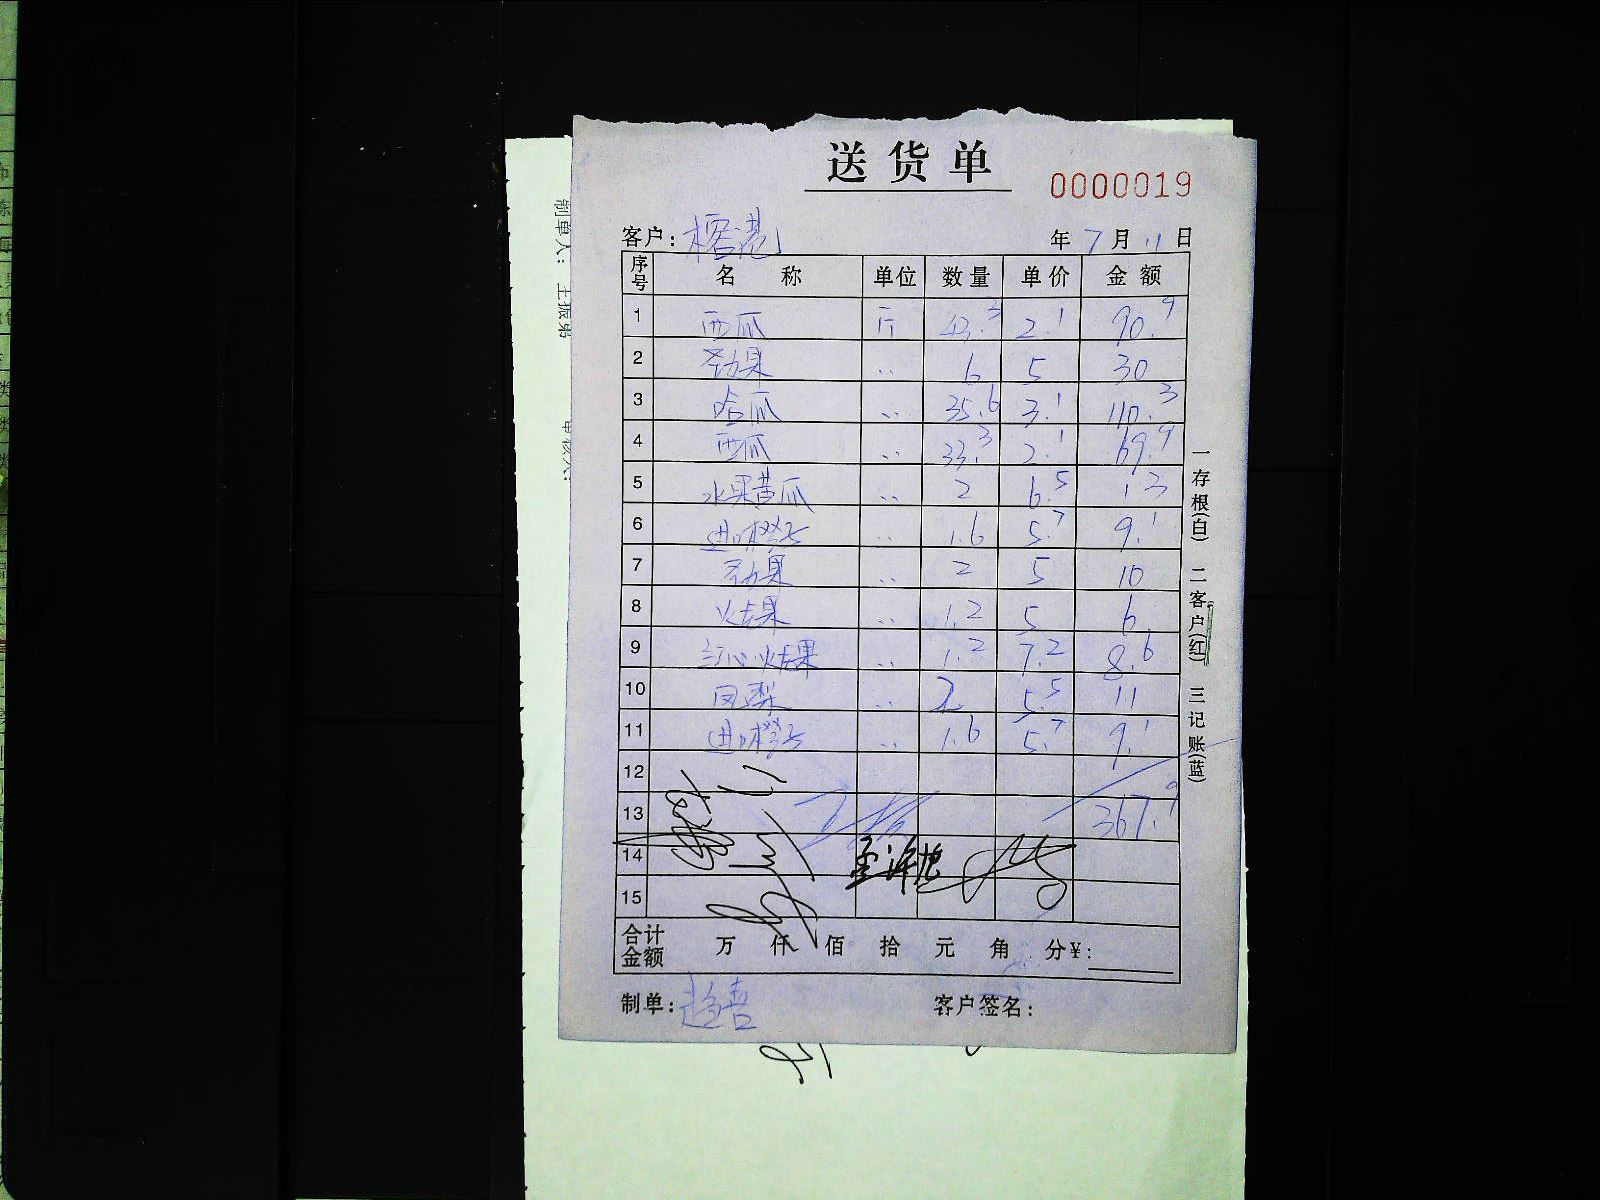 送货单
0000019
客户: 榕港 年 7 月 11 日
序号 名 称 单位 数量 单价 金额
1 西瓜 斤 43.3 2.1 90.9
2 芒果 〃 6 5 30
3 哈瓜 〃 35.6 3.1 110.3
4 西瓜 〃 33.3 2.1 69.9
5 水果黄瓜 〃 2 6.5 13
6 进口橙子 〃 1.6 5.7 9.1
7 芒果 〃 2 5 10
8 火龙果 〃 1.2 5 6
9 红心火龙果 〃 1.2 7.2 8.6
10 凤梨 〃 2 5.5 11
11 进口橙子 〃 1.6 5.7 9.1
12
13 367.9
14
15
合计金额 万 仟 佰 拾 元 角 分 ¥:
制单: 赵喜 客户签名:
一存根(白) 二客户(红) 三记账(蓝)
制单人: